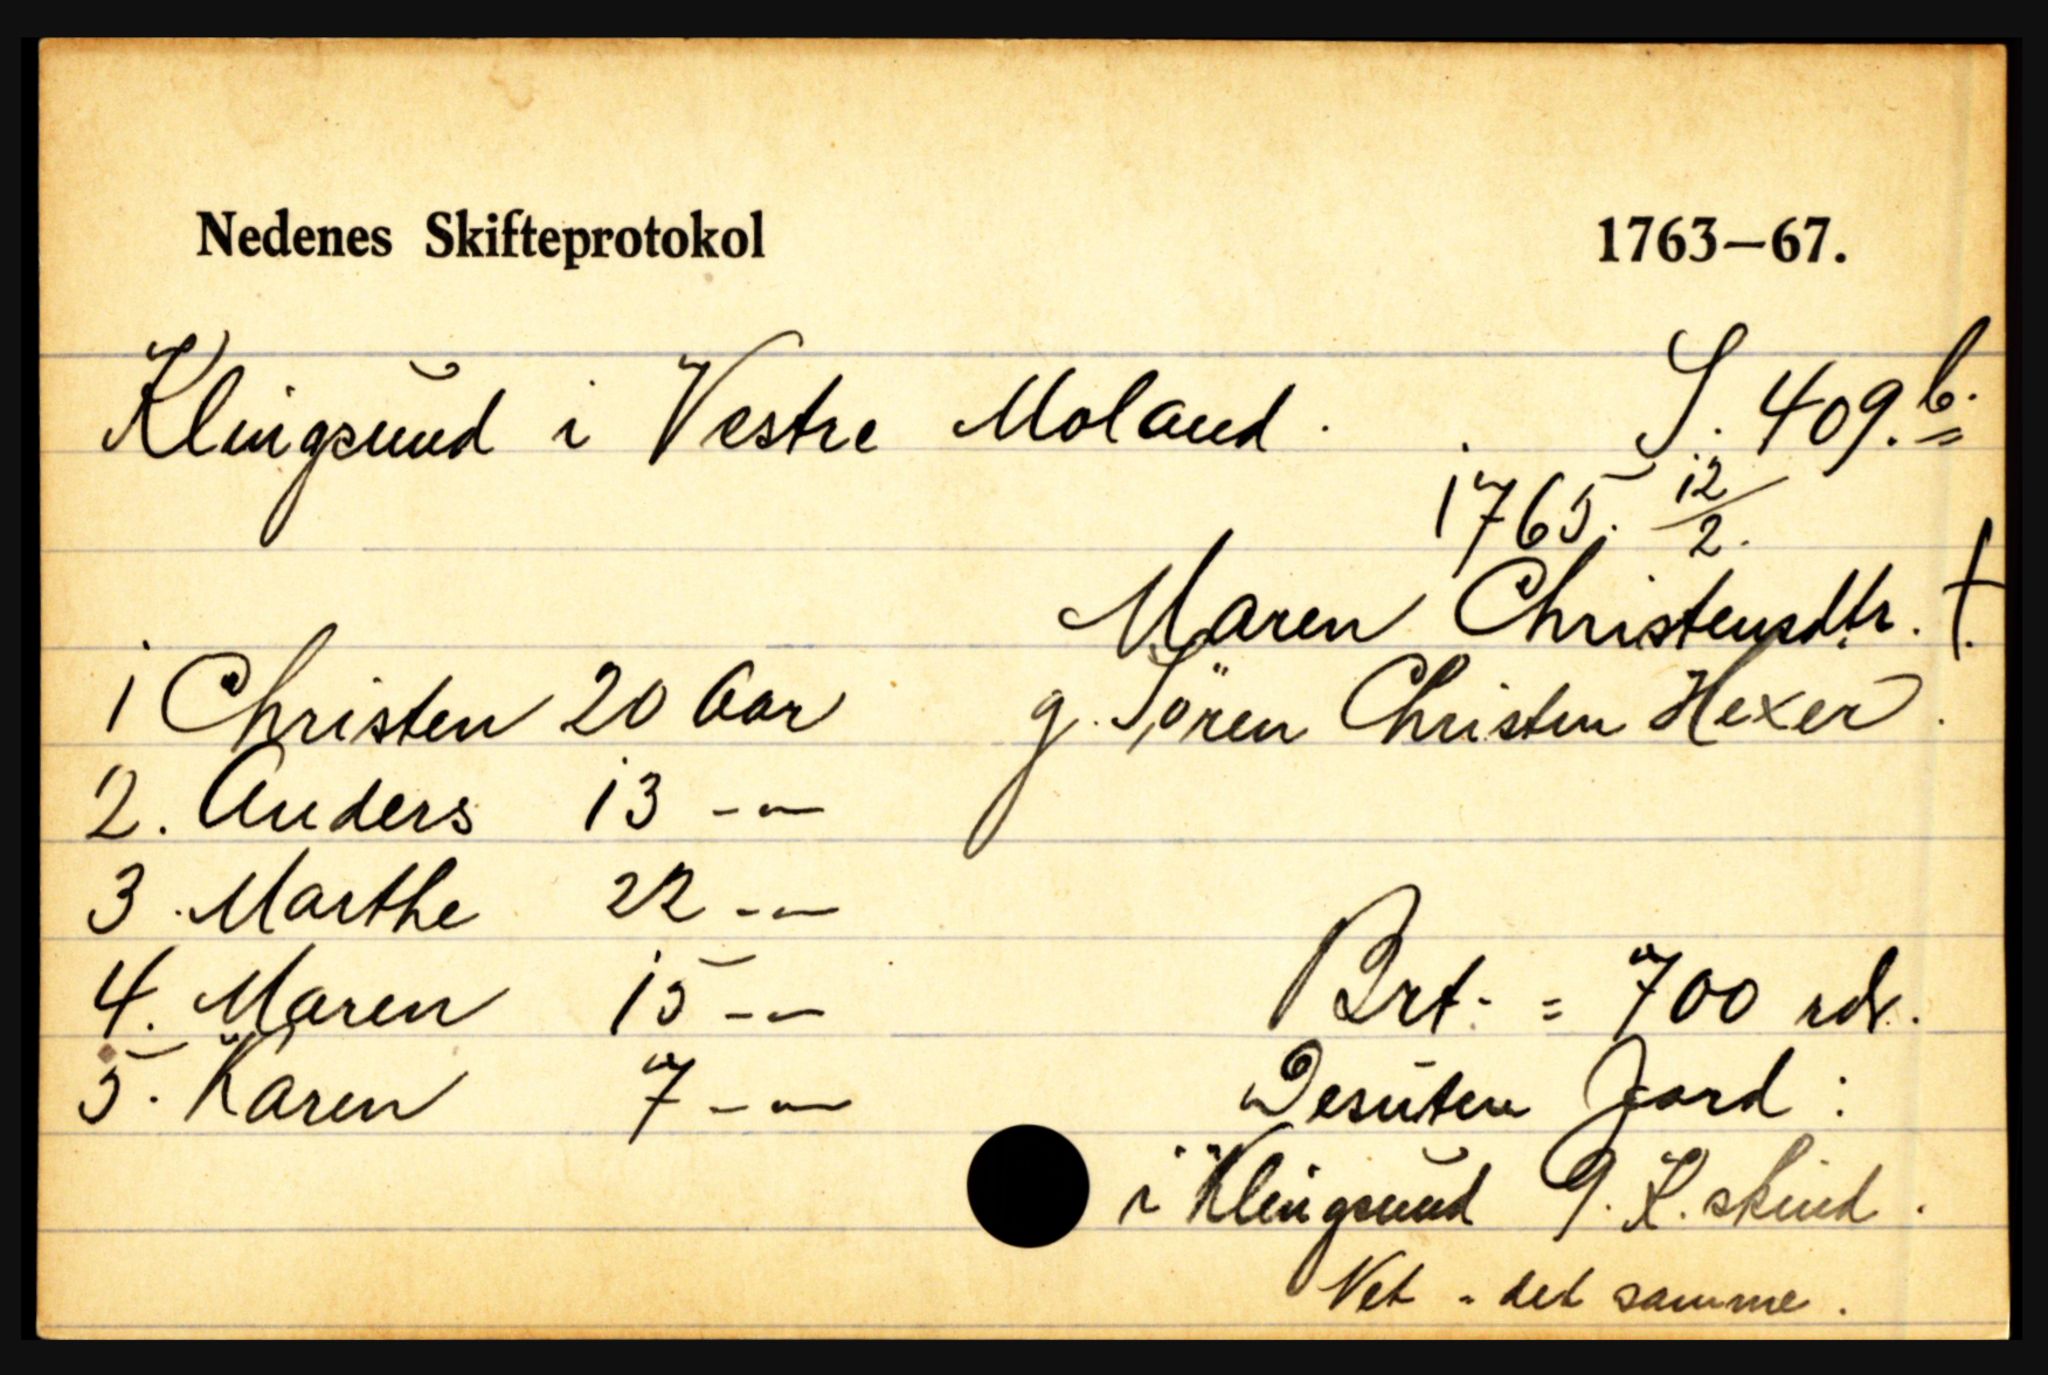 Nedenes Skifteprotokol 1763–67.
Klingsund i Vestre Moland. S. 409.b.
1765. 12/2.
Maren Christensdtr. †.
g. Sören Christen Hexer.
1 Christen 20 Aar
2. Anders 13 -"-
3. Marthe 22 -"-
4. Maren 15 -"-
5. Karen 7 -"-
Brt. = 700 rdr.
Desuten Jord:
i Klingsund 9. K. skind.
Net - det samme.